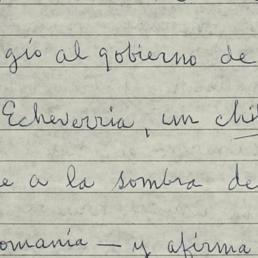 gió al gobierno de
Echeverría, un chi
e a la sombra de
omanía — y afirma